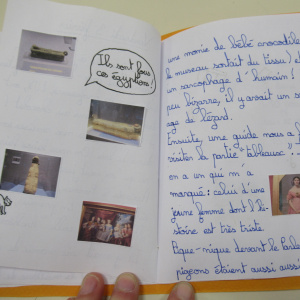 Ils sont fous
ces égyptiens!
une momie de bébé crocodile
le museau sortait du tissu) et
un sarcophage d'humain!
peu bizarre, il y avait un
age de lézard.
Ensuite, une guide nous a
visiter la partie "tableaux"
on a un qui m'a
marqué: celui d'une
jeune femme dont l'hi-
stoire est très triste.
Pique-nique devant le
pigeons étaient aussi